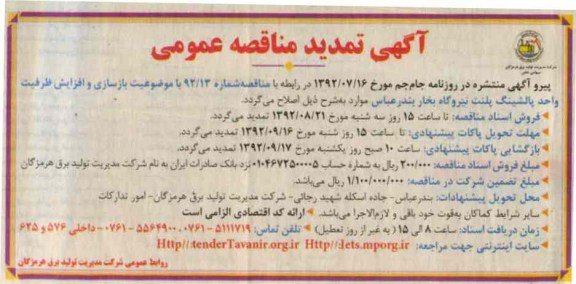 آگهی تمدید مناقصه عمومی
پیرو آگهی منتشره در روزنامه جام‌جم مورخ ۱۳۹۲/۰۷/۱۶ در رابطه با مناقصه‌شماره ۹۲/۱۳ با موضوعیت بازسازی و افزایش ظرفیت
واحد پالشینگ پلنت نیروگاه بخار بندرعباس موارد به‌شرح ذیل اصلاح می‌گردد.
فروش اسناد مناقصه: تا ساعت ۱۵ روز سه شنبه مورخ ۱۳۹۲/۰۸/۲۱ تمدید می‌گردد.
مهلت تحویل پاکات پیشنهادی: تا ساعت ۱۵ روز شنبه مورخ ۱۳۹۲/۰۹/۱۶ تمدید می‌گردد.
بازگشایی پاکات پیشنهادی: ساعت ۱۰ صبح روز یکشنبه مورخ ۱۳۹۲/۰۹/۱۷ تمدید می‌گردد.
مبلغ فروش اسناد مناقصه: ۲۰۰/۰۰۰ ریال به شماره حساب ۰۱۰۴۶۷۳۵۰۰۰۰۵ نزد بانک صادرات ایران به نام شرکت مدیریت تولید برق هرمزگان
مبلغ تضمین شرکت در مناقصه: ۱/۱۰۰/۰۰۰/۰۰۰ ریال می‌باشد.
محل تحویل پیشنهادات: بندرعباس- جاده اسکله شهید رجائی- شرکت مدیریت تولید برق هرمزگان- امور تدارکات
سایر شرایط کماکان به‌قوت خود باقی و لازم‌الاجرا می‌باشد. ارائه کد اقتصادی الزامی است
زمان دریافت اسناد: ساعت ۸ الی ۱۵ (به غیر از روز تعطیل) تلفن تماس: ۵۱۱۱۷۱۹-۰۷۶۱ ۵۵۶۴۹۰۰-۰۷۶۱ داخلی ۵۷۶ و ۶۲۵
سایت اینترنتی جهت مراجعه: Http//:tenderTavanir.org.ir Http//:iets.mporg.ir
روابط عمومی شرکت مدیریت تولید برق هرمزگان